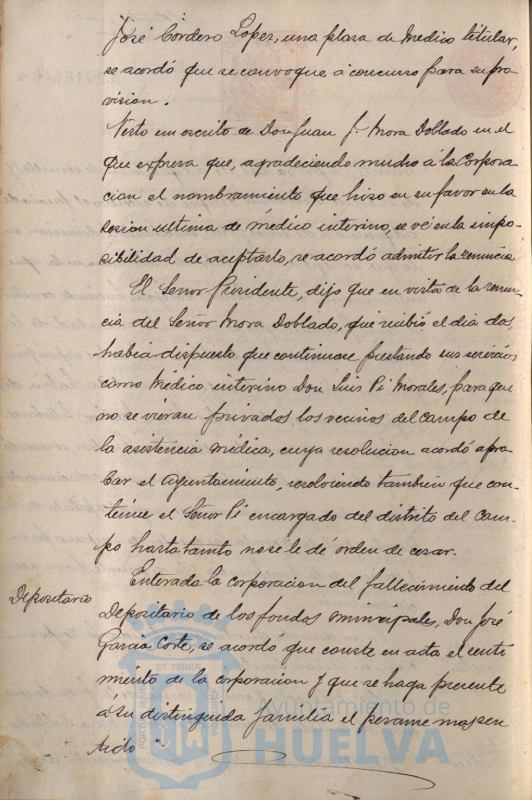 José Cordero Lopez, una plaza de Medico titular,
se acordó que se convoque á concurso para su pro
vision.
Visto un escrito de Don Juan J. Mora Doblado en el
que expresa que, agradeciendo mucho á la Corpora
cion el nombramiento que hizo en su favor en la
sesion ultima de médico interino, se vé en la impo
sibilidad de aceptarlo, se acordó admitir la renuncia
El Señor Presidente, dijo que en vista de la renun
cia del Señor Mora Doblado, que recibió el dia dos,
habia dispuesto que continuase prestando sus servicios
como Médico interino Don Luis Pi Morales, para que
no se vieran privados los vecinos del campo de
la asistencia médica, cuya resolucion acordó apro
bar el Ayuntamiento, resolviendo tambien que con
tinúe el Señor Pi encargado del distrito del Cam
po hasta tanto no se le dé orden de cesar.
Depositario
Enterada la corporacion del fallecimiento del
Depositario de los fondos municipales, Don José
Garcia Corte, se acordó que conste en acta el senti
miento de la corporacion y que se haga presente
a su distinguida familia el pesame mas sen
tido
ET TERRÆ
Ayuntamiento de
HUELVA